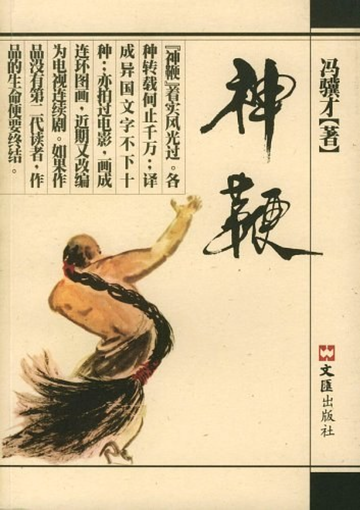 冯骥才【著】
神鞭
『神鞭』着实风光过。各
种转载何止千万；译
成异国文字不下十
种；亦拍过电影，画成
连环图画，近期又改编
为电视连续剧。如果作
品没有第二代读者，作
品的生命便要终结。
文匯出版社